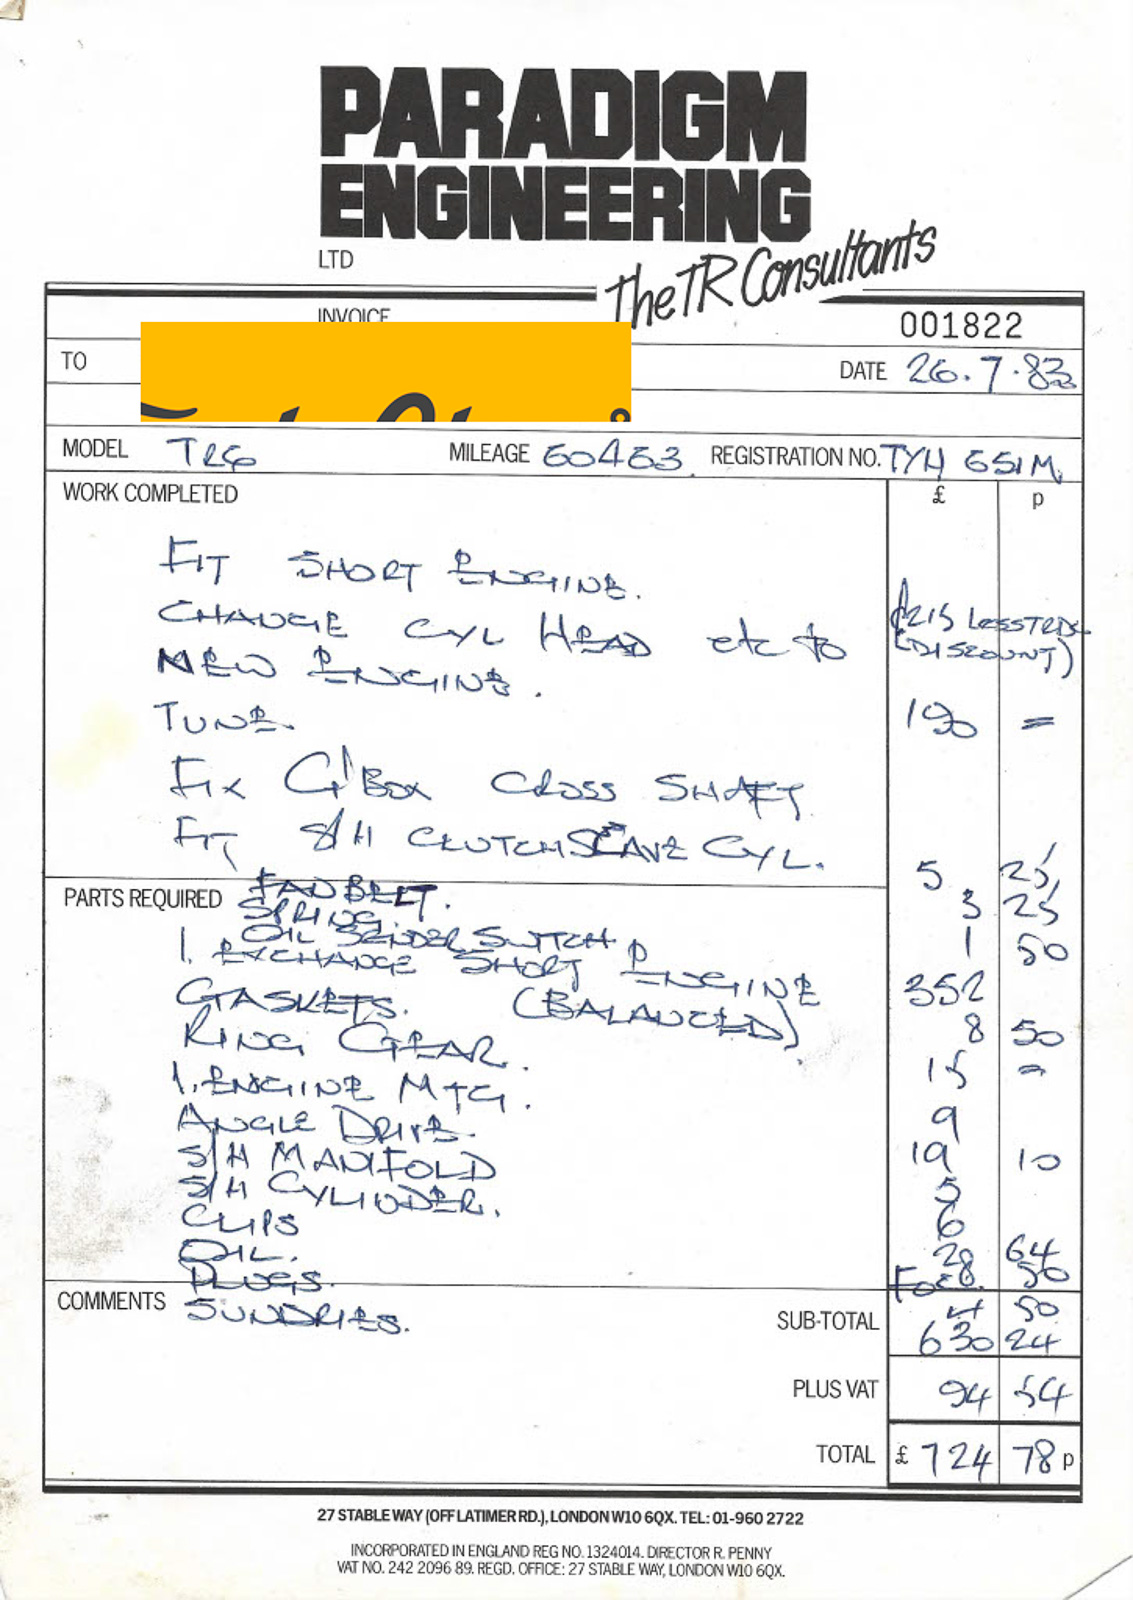 PARADIGM
ENGINEERING
LTD
The TR Consultants
INVOICE
001822
TO
DATE 26.7.83
MODEL TR6 MILEAGE 60463 REGISTRATION NO. TYH 651M
WORK COMPLETED £ p
FIT SHORT ENGINE.
CHANGE CYL HEAD etc to (215 LESS
NEW ENGINE. DISCOUNT)
TUNE. 190 =
FIX G/BOX CROSS SHAFT
FIT S/H CLUTCH SLAVE CYL.
PARTS REQUIRED FANBELT. 5 25
SPRING. 3 25
OIL SENDER SWITCH 1 50
1. EXCHANGE SHORT ENGINE 352
GASKETS. (BALANCED) 8 50
RING GEAR. 15 =
1. ENGINE MTG. 9
ANGLE DRIVE. 19 10
S/H MANIFOLD 5
S/H CYLINDER. 6
CLIPS
OIL. 28 64
PLUGS. 50
COMMENTS SUNDRIES. 50
SUB-TOTAL 630 24
PLUS VAT 94 54
TOTAL £ 724 78 p
27 STABLE WAY (OFF LATIMER RD.), LONDON W10 6QX. TEL: 01-960 2722
INCORPORATED IN ENGLAND REG NO. 1324014. DIRECTOR R. PENNY
VAT NO. 242 2096 89. REGD. OFFICE: 27 STABLE WAY, LONDON W10 6QX.